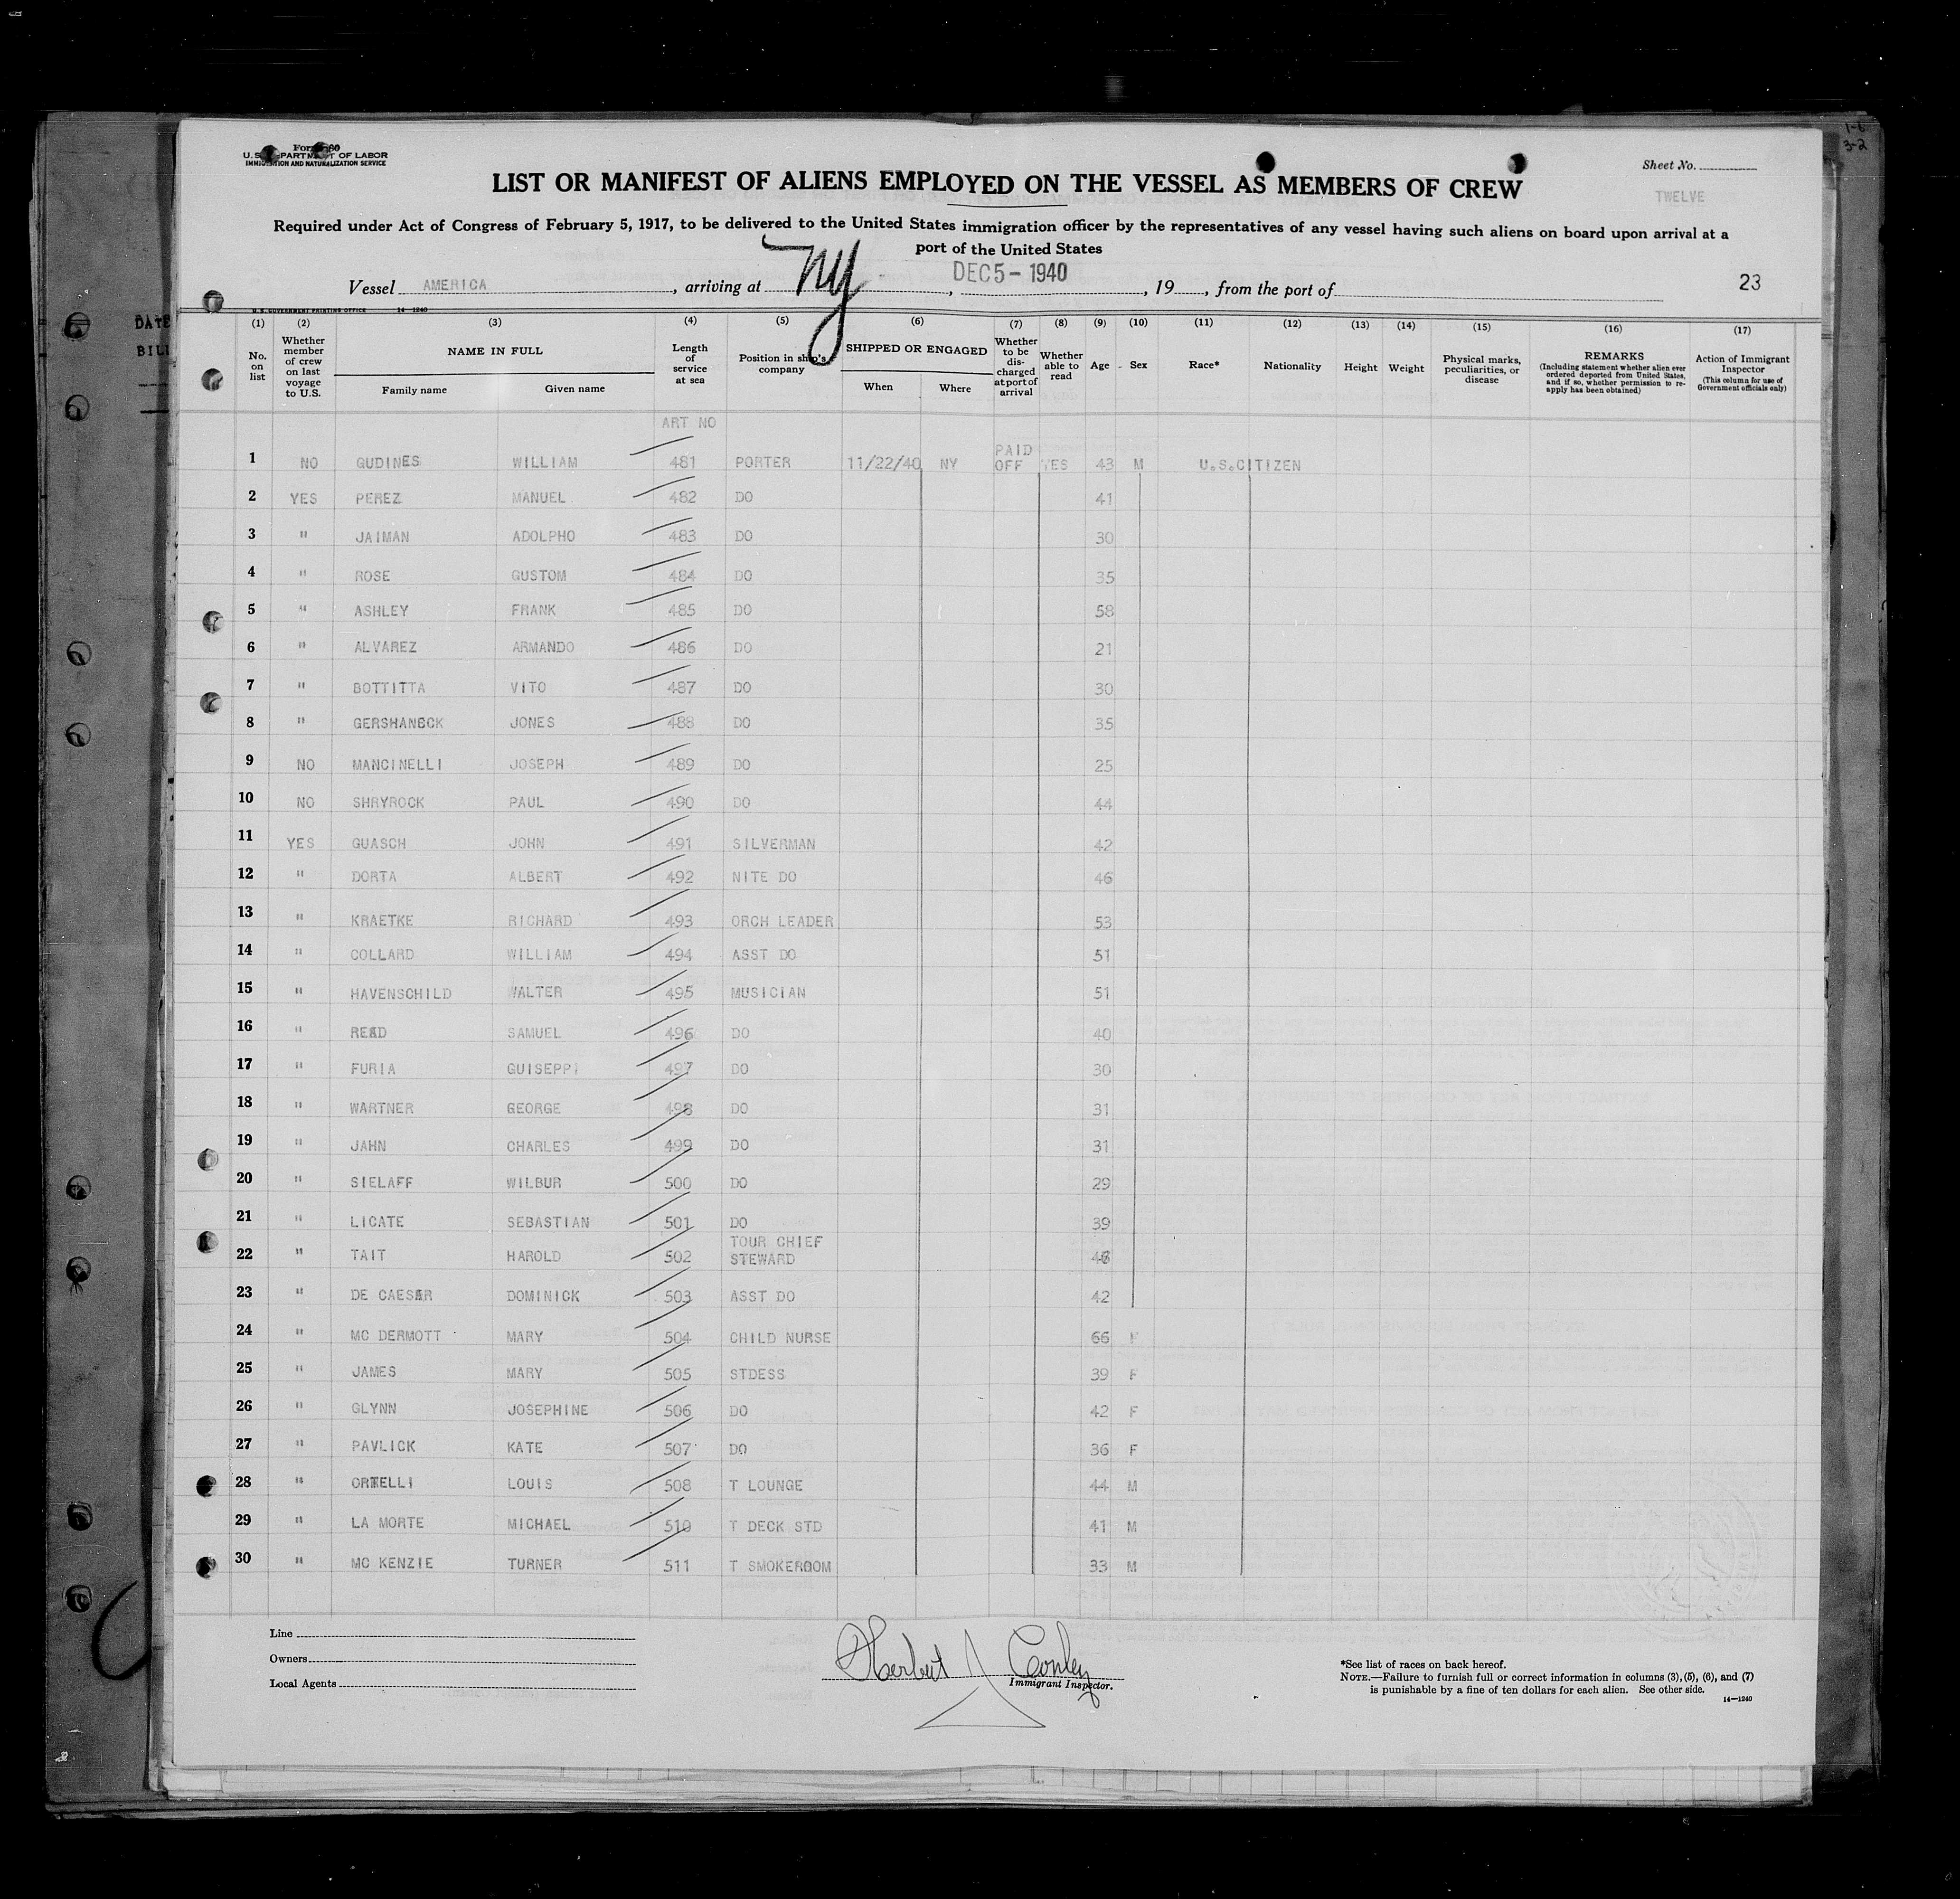 1-6
3-2
U.S. DEPARTMENT OF LABOR
IMMIGRATION AND NATURALIZATION SERVICE
Sheet No.
TWELVE
LIST OR MANIFEST OF ALIENS EMPLOYED ON THE VESSEL AS MEMBERS OF CREW
Required under Act of Congress of February 5, 1917, to be delivered to the United States immigration officer by the representatives of any vessel having such aliens on board upon arrival at a
port of the United States
Vessel AMERICA, arriving at NY, DEC 5 - 1940, 19, from the port of
23
U. S. GOVERNMENT PRINTING OFFICE 14—1240
DATE
BILL
(1) (2) (3) (4) (5) (6) (7) (8) (9) (10) (11) (12) (13) (14) (15) (16) (17)
No. on list
Whether member of crew on last voyage to U.S.
NAME IN FULL
Family name
Given name
Length of service at sea
Position in ship's company
SHIPPED OR ENGAGED
When
Where
Whether to be discharged at port of arrival
Whether able to read
Age
Sex
Race*
Nationality
Height
Weight
Physical marks, peculiarities, or disease
REMARKS
(Including statement whether alien ever ordered deported from United States, and if so, whether permission to re-apply has been obtained)
Action of Immigrant Inspector
(This column for use of Government officials only)
ART NO
1 NO GUDINES WILLIAM 481 PORTER 11/22/40 NY PAID OFF YES 43 M U.S.CITIZEN
2 YES PEREZ MANUEL 482 DO 41
3 " JAIMAN ADOLPHO 483 DO 30
4 " ROSE GUSTOM 484 DO 35
5 " ASHLEY FRANK 485 DO 58
6 " ALVAREZ ARMANDO 486 DO 21
7 " BOTTITTA VITO 487 DO 30
8 " GERSHANBCK JONES 488 DO 35
9 NO MANCINELLI JOSEPH 489 DO 25
10 NO SHRYROCK PAUL 490 DO 44
11 YES GUASCH JOHN 491 SILVERMAN 42
12 " DORTA ALBERT 492 NITE DO 46
13 " KRAETKE RICHARD 493 ORCH LEADER 53
14 " COLLARD WILLIAM 494 ASST DO 51
15 " HAVENSCHILD WALTER 495 MUSICIAN 51
16 " READ SAMUEL 496 DO 40
17 " FURIA GUISEPPI 497 DO 30
18 " WARTNER GEORGE 498 DO 31
19 " JAHN CHARLES 499 DO 31
20 " SIELAFF WILBUR 500 DO 29
21 " LICATE SEBASTIAN 501 DO 39
22 " TAIT HAROLD 502 TOUR CHIEF STEWARD 46
23 " DE CAESAR DOMINICK 503 ASST DO 42
24 " MC DERMOTT MARY 504 CHILD NURSE 66 F
25 " JAMES MARY 505 STDESS 39 F
26 " GLYNN JOSEPHINE 506 DO 42 F
27 " PAVLICK KATE 507 DO 36 F
28 " ORTELLI LOUIS 508 T LOUNGE 44 M
29 " LA MORTE MICHAEL 510 T DECK STD 41 M
30 " MC KENZIE TURNER 511 T SMOKEROOM 33 M
Line
Owners
Local Agents
Herbert J Conley
Immigrant Inspector.
*See list of races on back hereof.
NOTE.—Failure to furnish full or correct information in columns (3), (5), (6), and (7)
is punishable by a fine of ten dollars for each alien. See other side.
14—1240